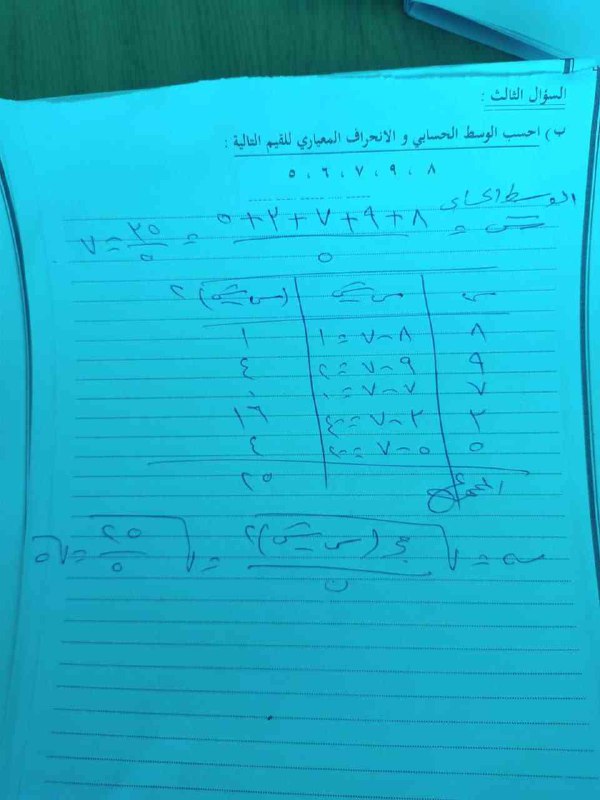 السؤال الثالث :
ب) احسب الوسط الحسابي و الانحراف المعياري للقيم التالية :
٨ ، ٩ ، ٧ ، ٦ ، ٥
الوسط الحسابي
سَ = ٨+٩+٧+٣+٥ / ٥ = ٣٥ / ٥ = ٧
س س-سَ (س-سَ)٢
٨ ٨-٧=١ ١
٩ ٩-٧=٢ ٤
٧ ٧-٧=٠ ٠
٣ ٣-٧=-٤ ١٦
٥ ٥-٧=-٢ ٤
المجموع ٢٥
ع = √ مجـ(س-سَ)٢ / ن = √ ٢٥ / ٥ = √٥